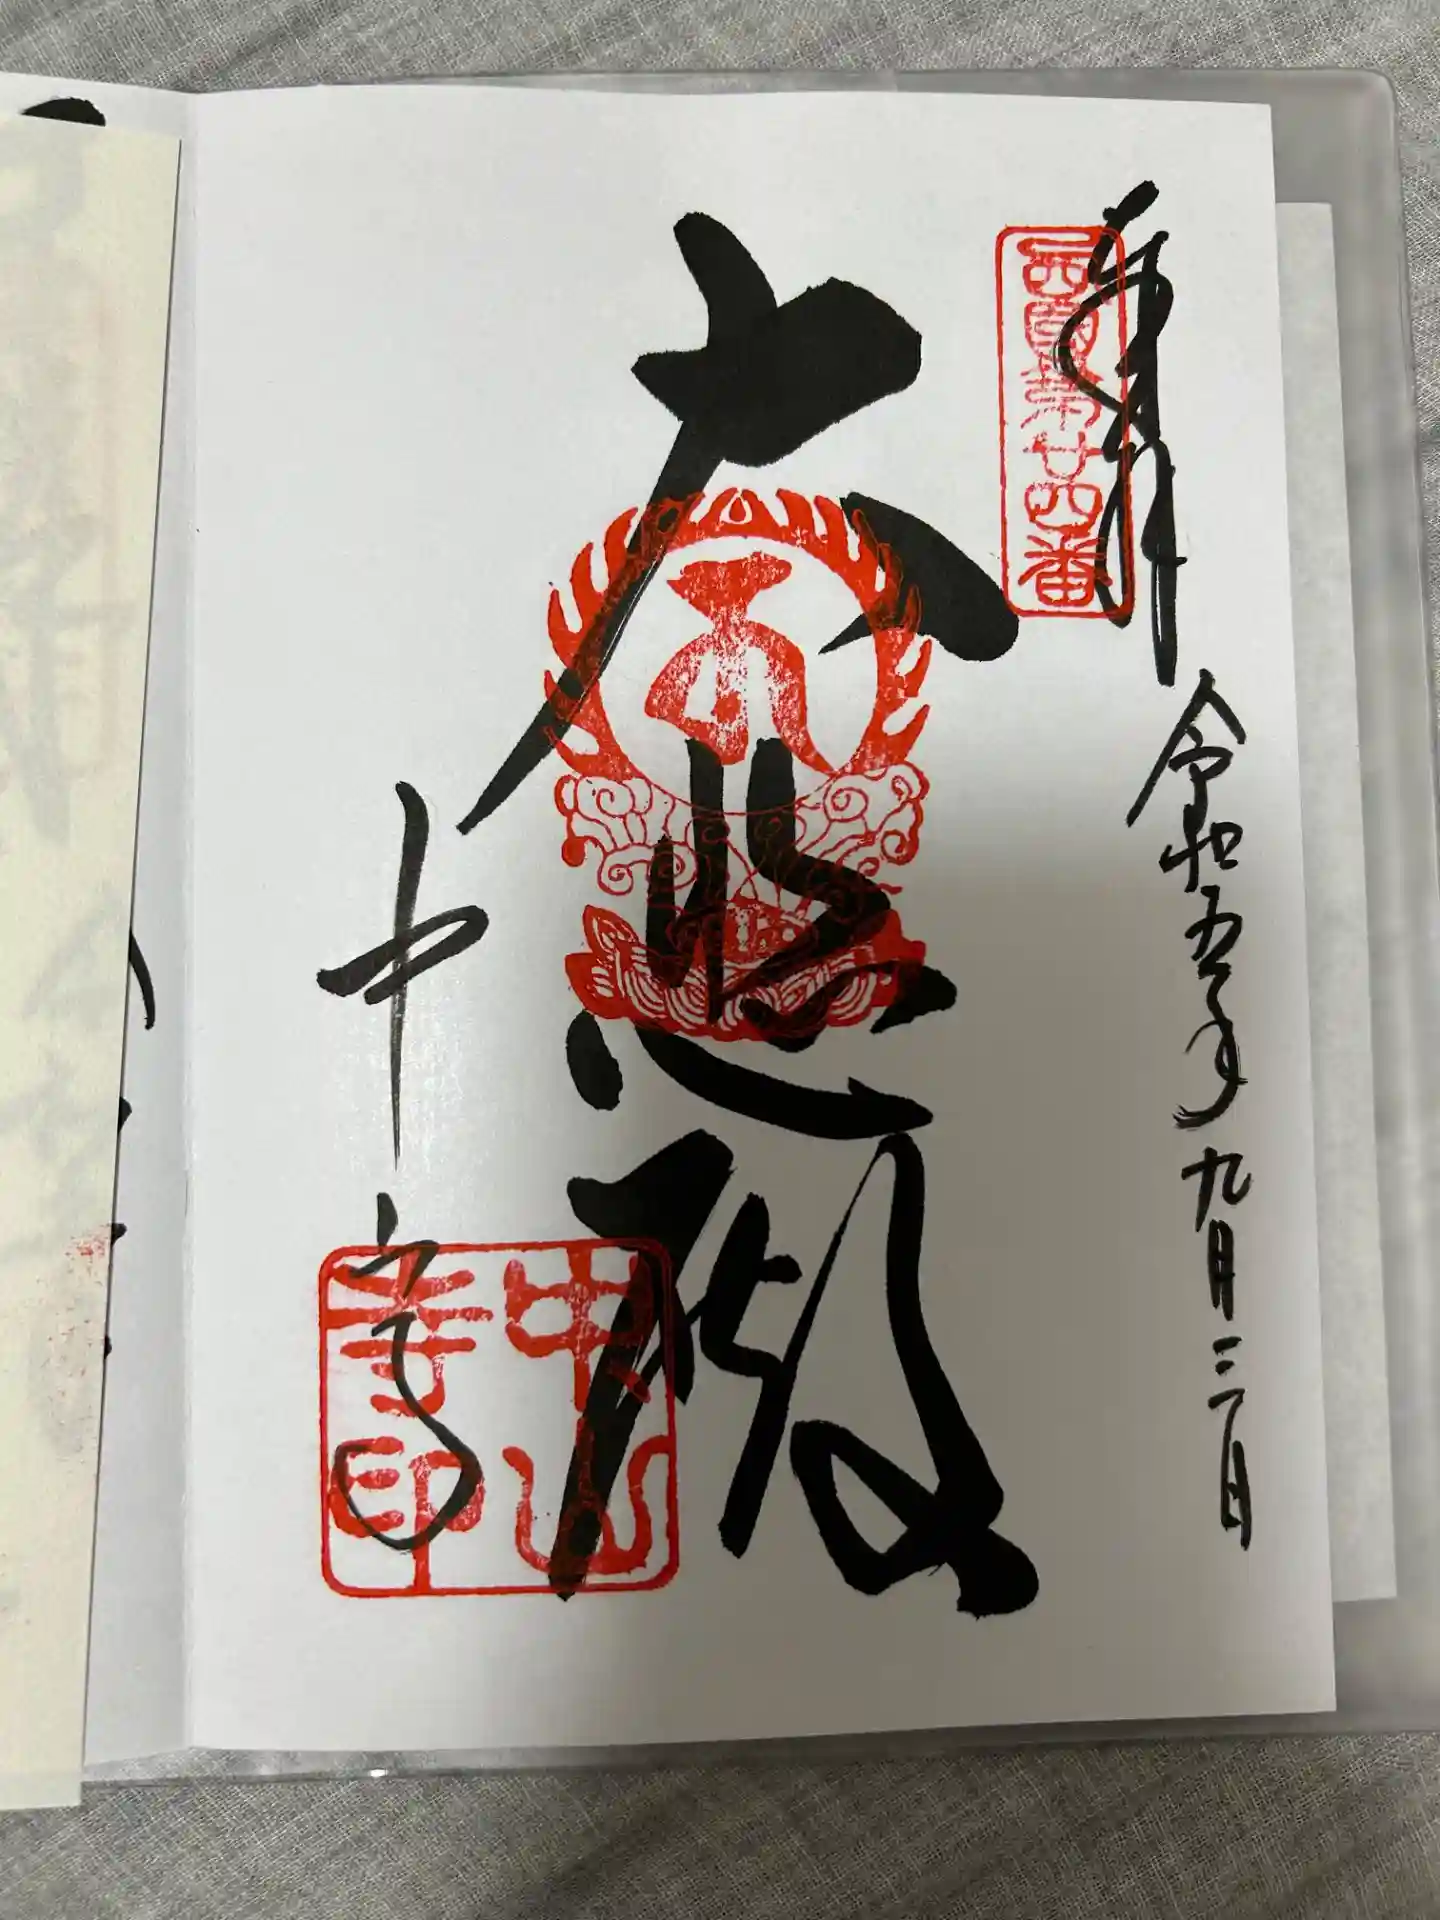 奉拝
西國第廿四番
令和五年九月三日
大悲殿
中山寺
中山
寺印